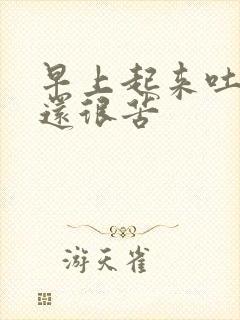 早上起来吐
還很苦
游天雀